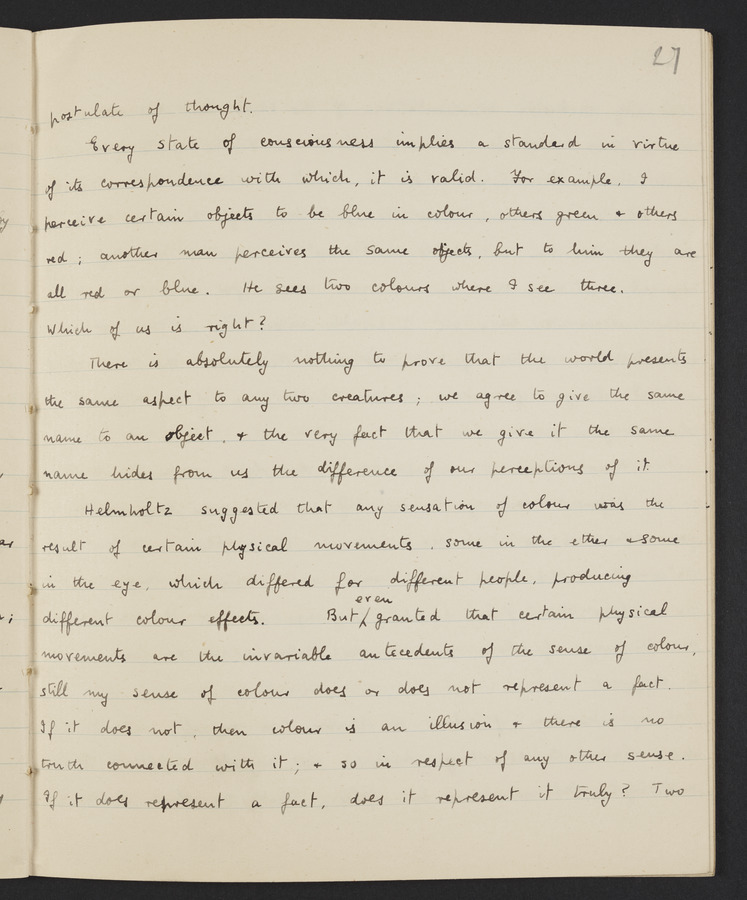 27
postulate of thought.
Every state of consciousness implies a standard in virtue
of its correspondence with which, it is valid. For example, I
perceive certain objects to be blue in colour, others green & others
red; another man perceives the same objects, but to him they are
all red or blue. He sees two colours where I see three.
Which of us is right?
There is absolutely nothing to prove that the world presents
the same aspect to any two creatures; we agree to give the same
name to an object, & the very fact that we give it the same
name hides from us the difference of our perceptions of it.
Helmholtz suggested that any sensation of colour was the
result of certain physical movements, some in the ether & some
in the eye, which differed for different people, producing
even
different colour effects. But granted that certain physical
movements are the invariable antecedents of the sense of colour,
still my sense of colour does or does not represent a fact.
If it does not, then colour is an illusion & there is no
truth connected with it; & so in respect of any other sense.
If it does represent a fact, does it represent it truly? Two